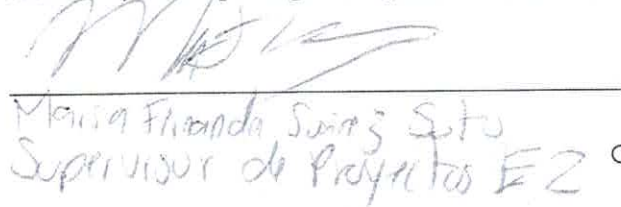 Maria Fernanda Suárez Soto
Supervisor de Proyectos EZ